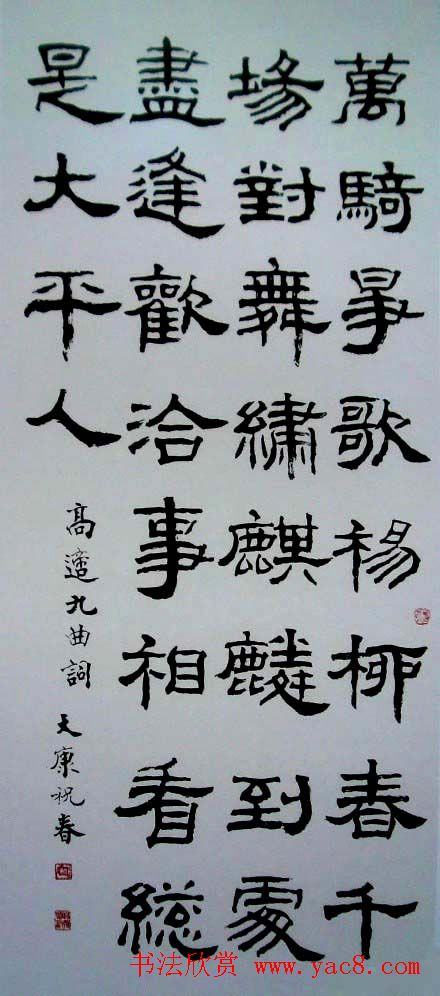 萬騎爭歌楊柳春千
場對舞繡麒麟到處
盡逢歡洽事相看總
是大平人
高適九曲詞 大康祝春
书法欣赏 www.yac8.com